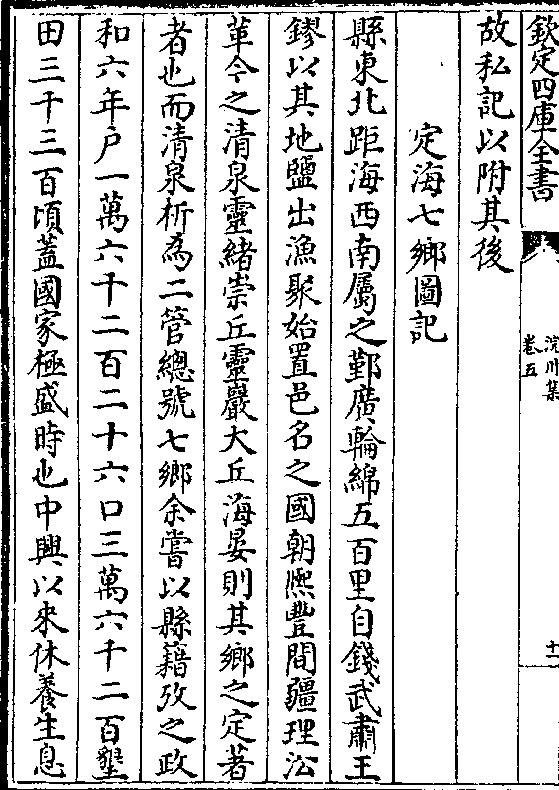 欽定四庫全書
浣川集
卷五
十一
故私記以附其後
定海七鄉圖記
縣東北距海西南屬之鄞廣輪綿五百里自錢武肅王
鏐以其地鹽出漁聚始置邑名之國朝熈豐間疆理㳂
革今之清泉靈緒崇丘靈巖大丘海晏則其鄉之定著
者也而清泉析為二管總號七鄉余嘗以縣籍攷之政
和六年户一萬六千二百二十六口三萬六千二百墾
田三千三百頃蓋國家極盛時也中興以來休養生息